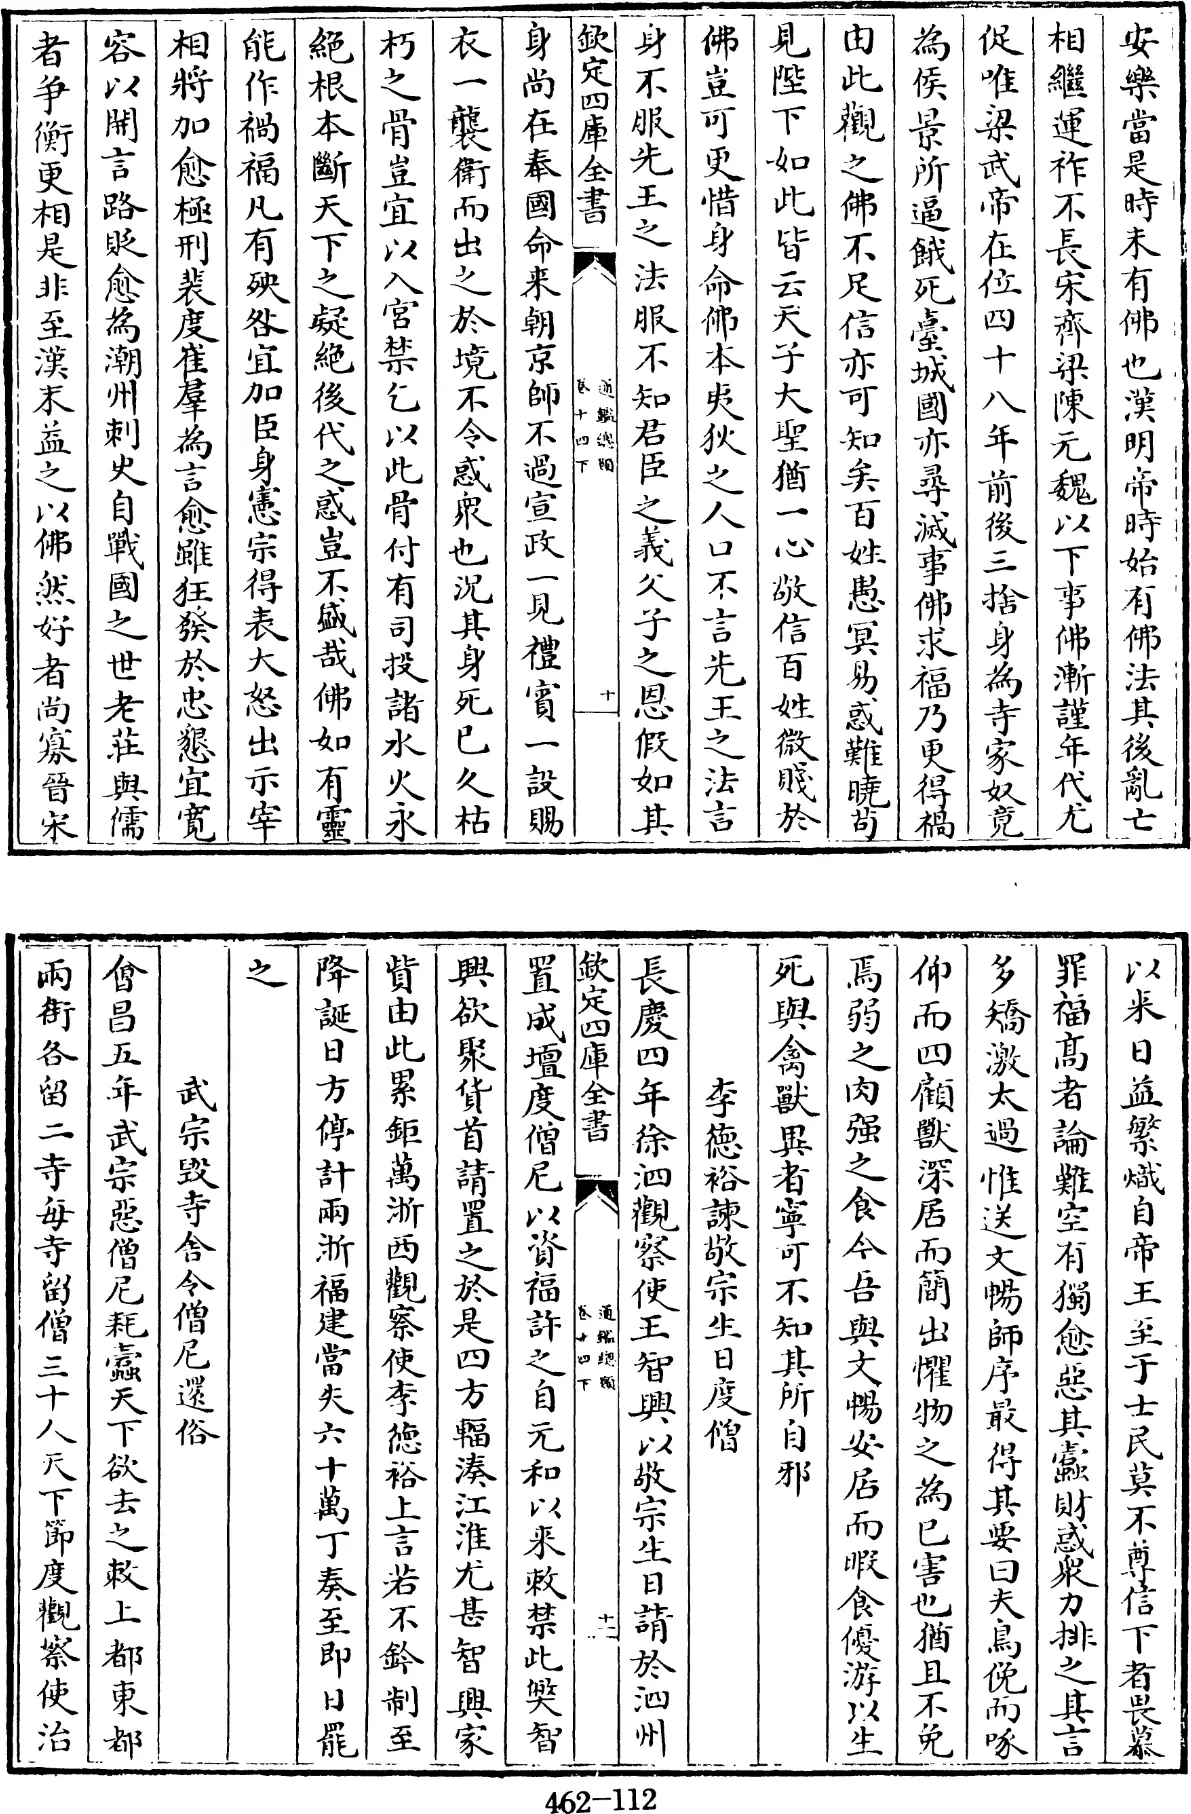 安樂當是時未有佛也漢明帝時始有佛法其後亂亡
相繼運祚不長宋齊梁陳元魏以下事佛漸謹年代尤
促唯梁武帝在位四十八年前後三捨身為寺家奴竟
為侯景所逼餓死臺城國亦尋滅事佛求福乃更得禍
由此觀之佛不足信亦可知矣百姓愚冥易惑難曉茍
見陛下如此皆云天子大聖猶一心敬信百姓微賤於
佛豈可更惜身命佛本夷狄之人口不言先王之法言
身不服先王之法服不知君臣之義父子之恩假如其
欽定四庫全書
通鑑總類
卷十四下
十
身尚在奉國命来朝京師不過宣政一見禮賓一設賜
衣一襲衛而出之於境不令惑衆也況其身死已久枯
朽之骨豈宜以入宮禁乞以此骨付有司投諸水火永
絕根本斷天下之疑絕後代之惑豈不盛哉佛如有靈
能作禍福凡有殃咎宜加臣身憲宗得表大怒出示宰
相將加愈極刑裴度崔羣為言愈雖狂發於忠懇宜寛
容以開言路貶愈為潮州刺史自戰國之世老莊與儒
者爭衡更相是非至漢末益之以佛然好者尚寡晉宋
以来日益繁熾自帝王至于士民莫不尊信下者畏慕
罪福髙者論難空有獨愈惡其蠹財惑衆力排之其言
多矯激太過惟送文暢師序最得其要曰夫鳥俛而啄
仰而四顧獸深居而簡出懼物之為已害也猶且不免
焉弱之肉强之食今吾與文暢安居而暇食優游以生
死與禽獸異者寧可不知其所自邪
李德裕諫敬宗生日度僧
長慶四年徐泗觀察使王智興以敬宗生日請於泗州
欽定四庫全書
通鑑總類
卷十四下
十一
置戒壇度僧尼以資福許之自元和以来敕禁此弊智
興欲聚貨首請置之於是四方輻湊江淮尤甚智興家
貲由此累鉅萬浙西觀察使李德裕上言若不鈐制至
降誕日方停計兩浙福建當失六十萬丁奏至即日罷
之
武宗毀寺舎令僧尼還俗
㑹昌五年武宗惡僧尼耗蠹天下欲去之敕上都東都
兩街各留二寺每寺留僧三十人天下節度觀察使治
462-112